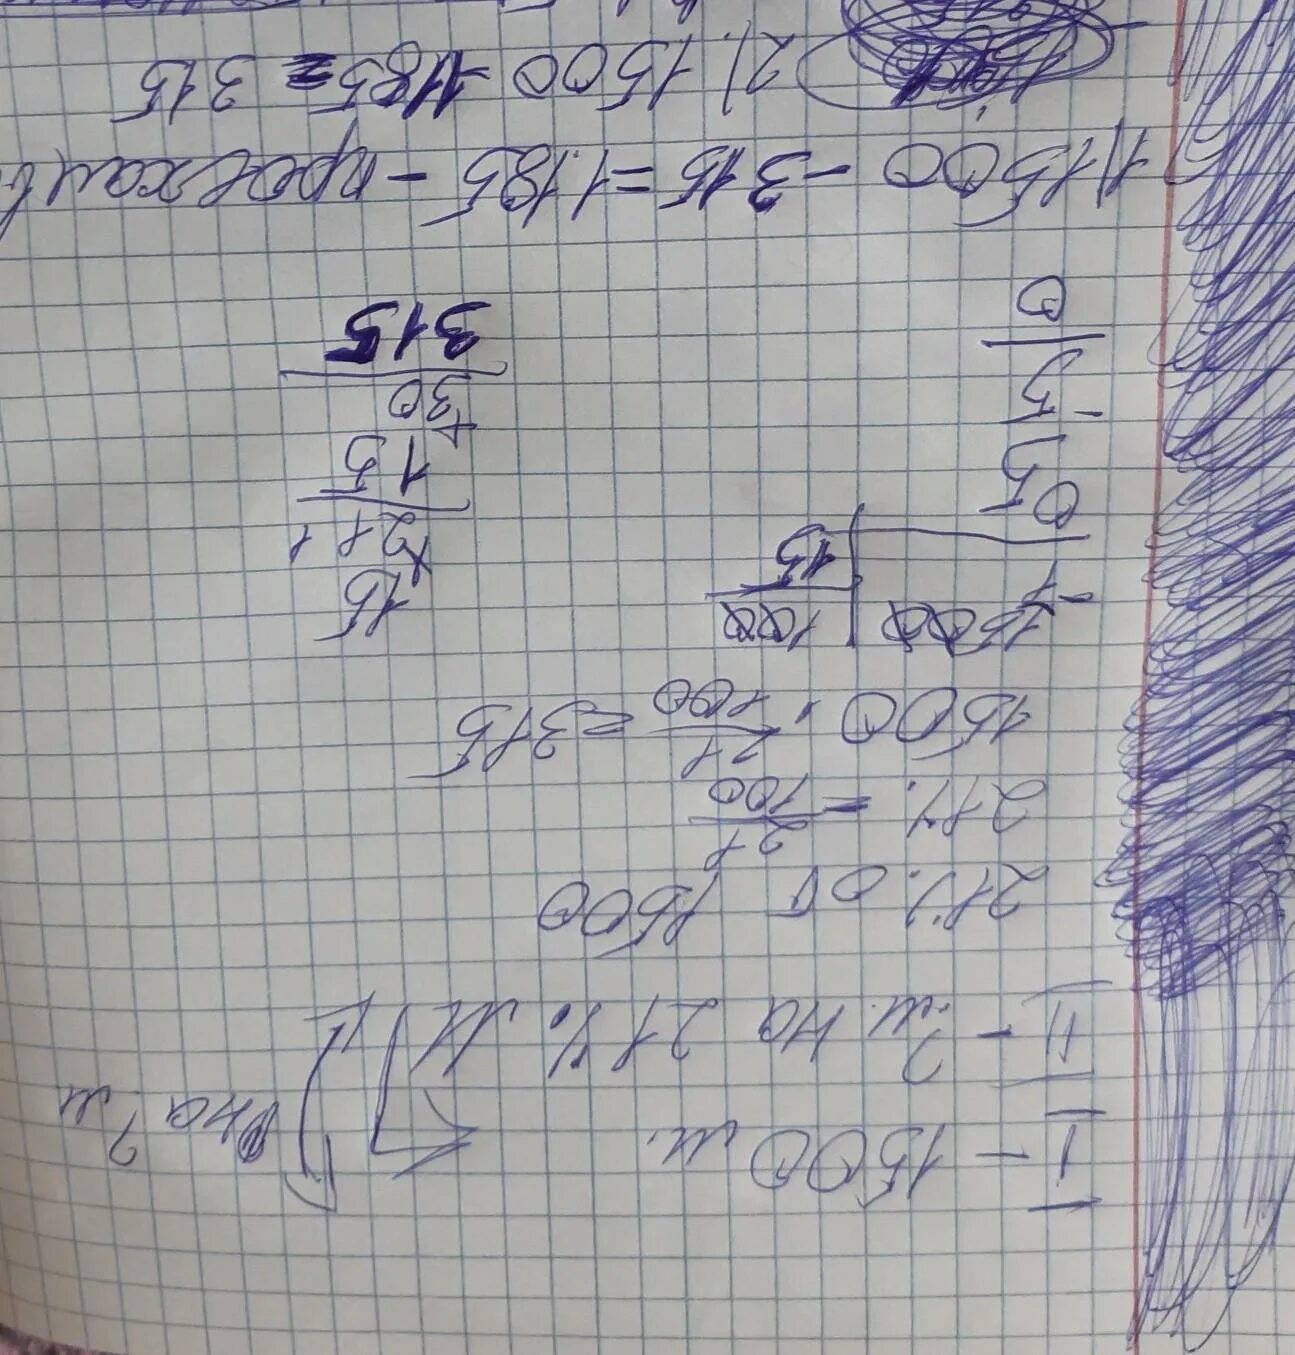 I - 1500 м.
? м
на
II - ? м. на 21% М
21% от 1500
21% = 21/100
1500 · 21/100 = 315
1500 | 100
15
- 1
15
05
× 21
- 5
15
0
+ 30
315
1) 1500 - 315 = 1.185 - проехали
2). 1500 - 1185 = 315